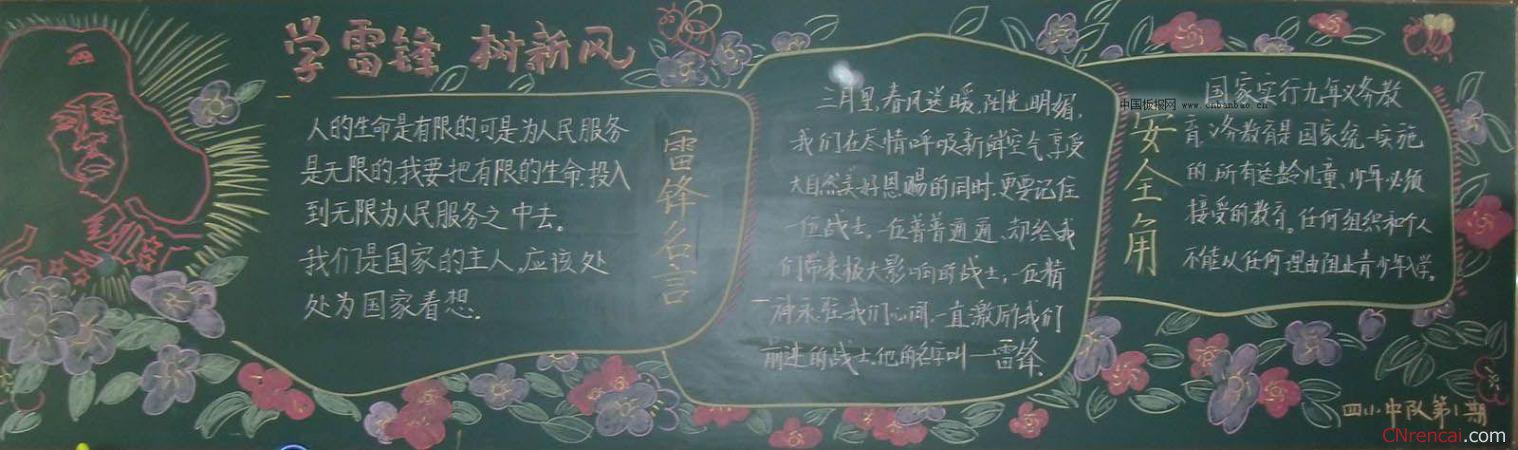 学雷锋 树新风
人的生命是有限的,可是为人民服务
是无限的,我要把有限的生命,投入
到无限为人民服务之中去。
我们是国家的主人,应该处
处为国家着想.
雷锋名言
三月里,春风送暖,阳光明媚,
我们在尽情呼吸新鲜空气,享受
大自然美好恩赐的同时,更要记住
一位战士。一位普普通通、却给我
们带来极大影响的战士,一位精
神永驻我们心间,一直激励我们
前进的战士,他的名字叫—雷锋.
中国板报网 www.cnbanbao.cn
安全角
国家实行九年义务教
育,义务教育是国家统一实施
的,所有适龄儿童、少年必须
接受的教育。任何组织和个人
不能以任何理由阻止青少年入学。
四小中队第1期
CNrencai.com